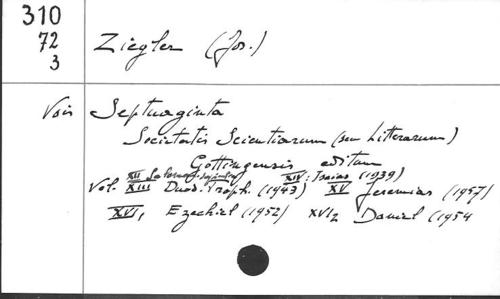 310
72
3
Ziegler (Jos.)
Vois Septuaginta
Societatis Scientiarum (seu Litterarum)
Gottingensis editum
XII XIV: Isaias (1939)
Vol. XIII Duod. Proph. (1943) XV Jeremias (1957)
XVI, Ezechiel (1952) XVI2 Daniel (1954